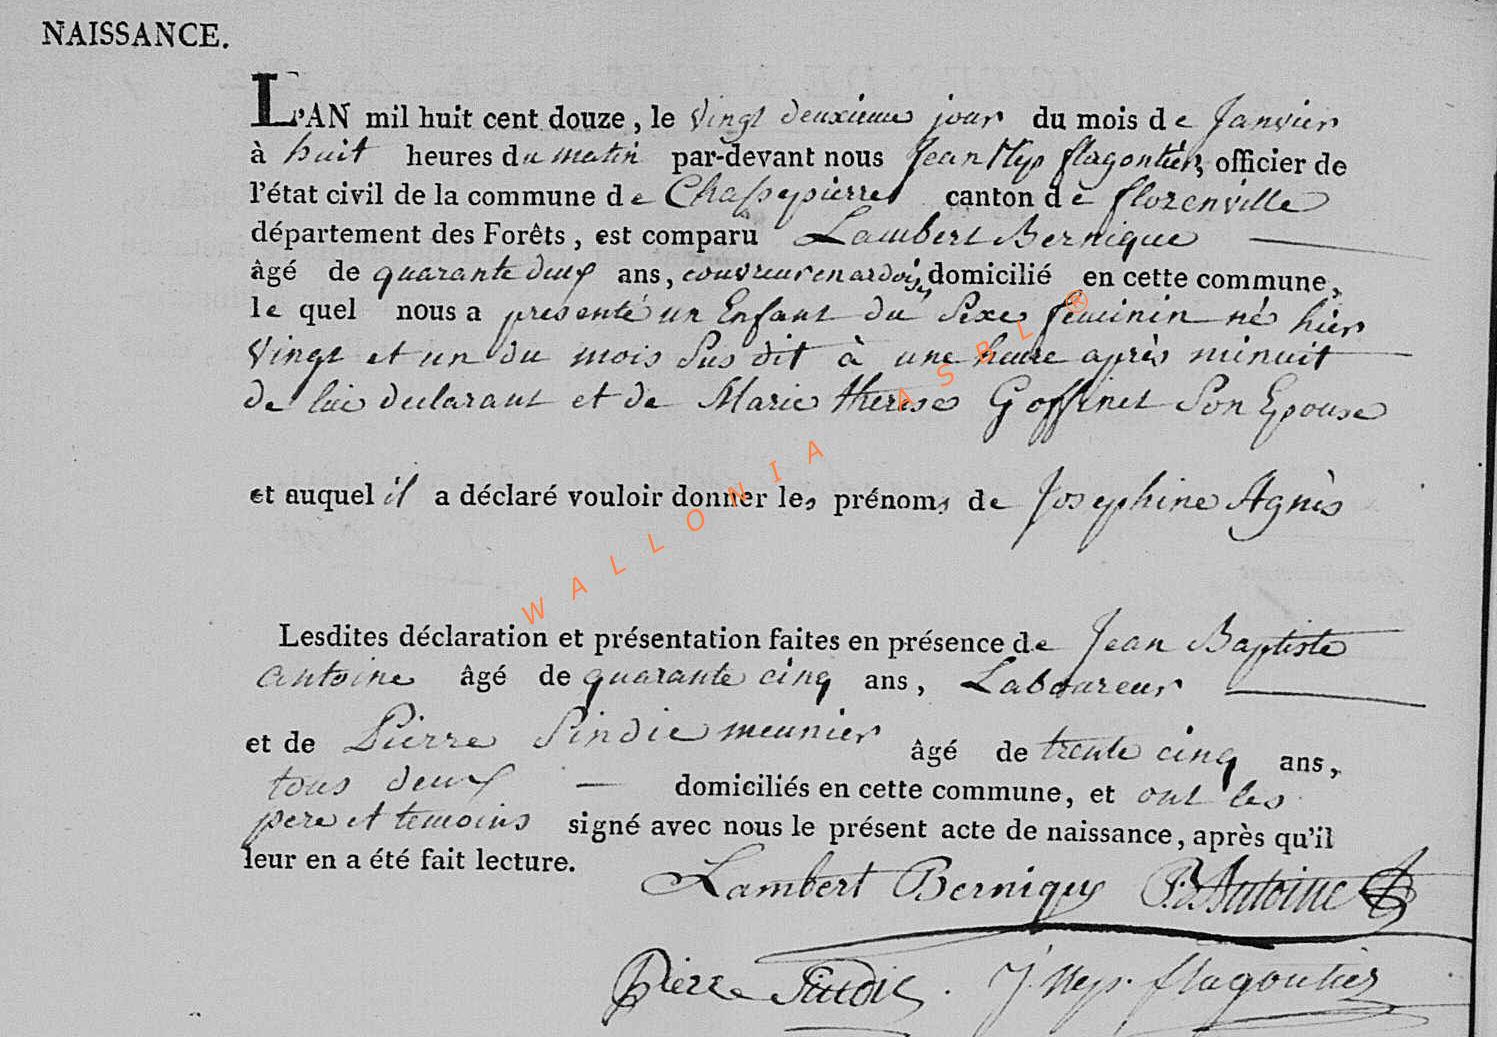 NAISSANCE.
L'AN mil huit cent douze, le vingt deuxieme jour du mois de Janvier
à huit heures du matin par-devant nous Jean Nep flagontier, officier de
l'état civil de la commune de Chassepierre canton de florenville
département des Forêts, est comparu Lambert Bernique
âgé de quarante deux ans, couvreur en ardoises domicilié en cette commune,
le quel nous a presenté un Enfant du Sexe feminin né hier
vingt et un du mois Sus dit à une heure après minuit
de lui declarant et de Marie therese Goffinet Son Epouse
et auquel il a déclaré vouloir donner les prénoms de Josephine Agnès
Lesdites déclaration et présentation faites en présence de Jean Baptiste
antoine âgé de quarante cinq ans, Laboureur
et de Pierre Sindic meunier âgé de trente cinq ans,
tous deux domiciliés en cette commune, et ont les
pere et temoins signé avec nous le présent acte de naissance, après qu'il
leur en a été fait lecture.
Lambert Berniquy Antoine
Pierre Sindic. J. Nep. flagontier
WALLONIA ASBL ®